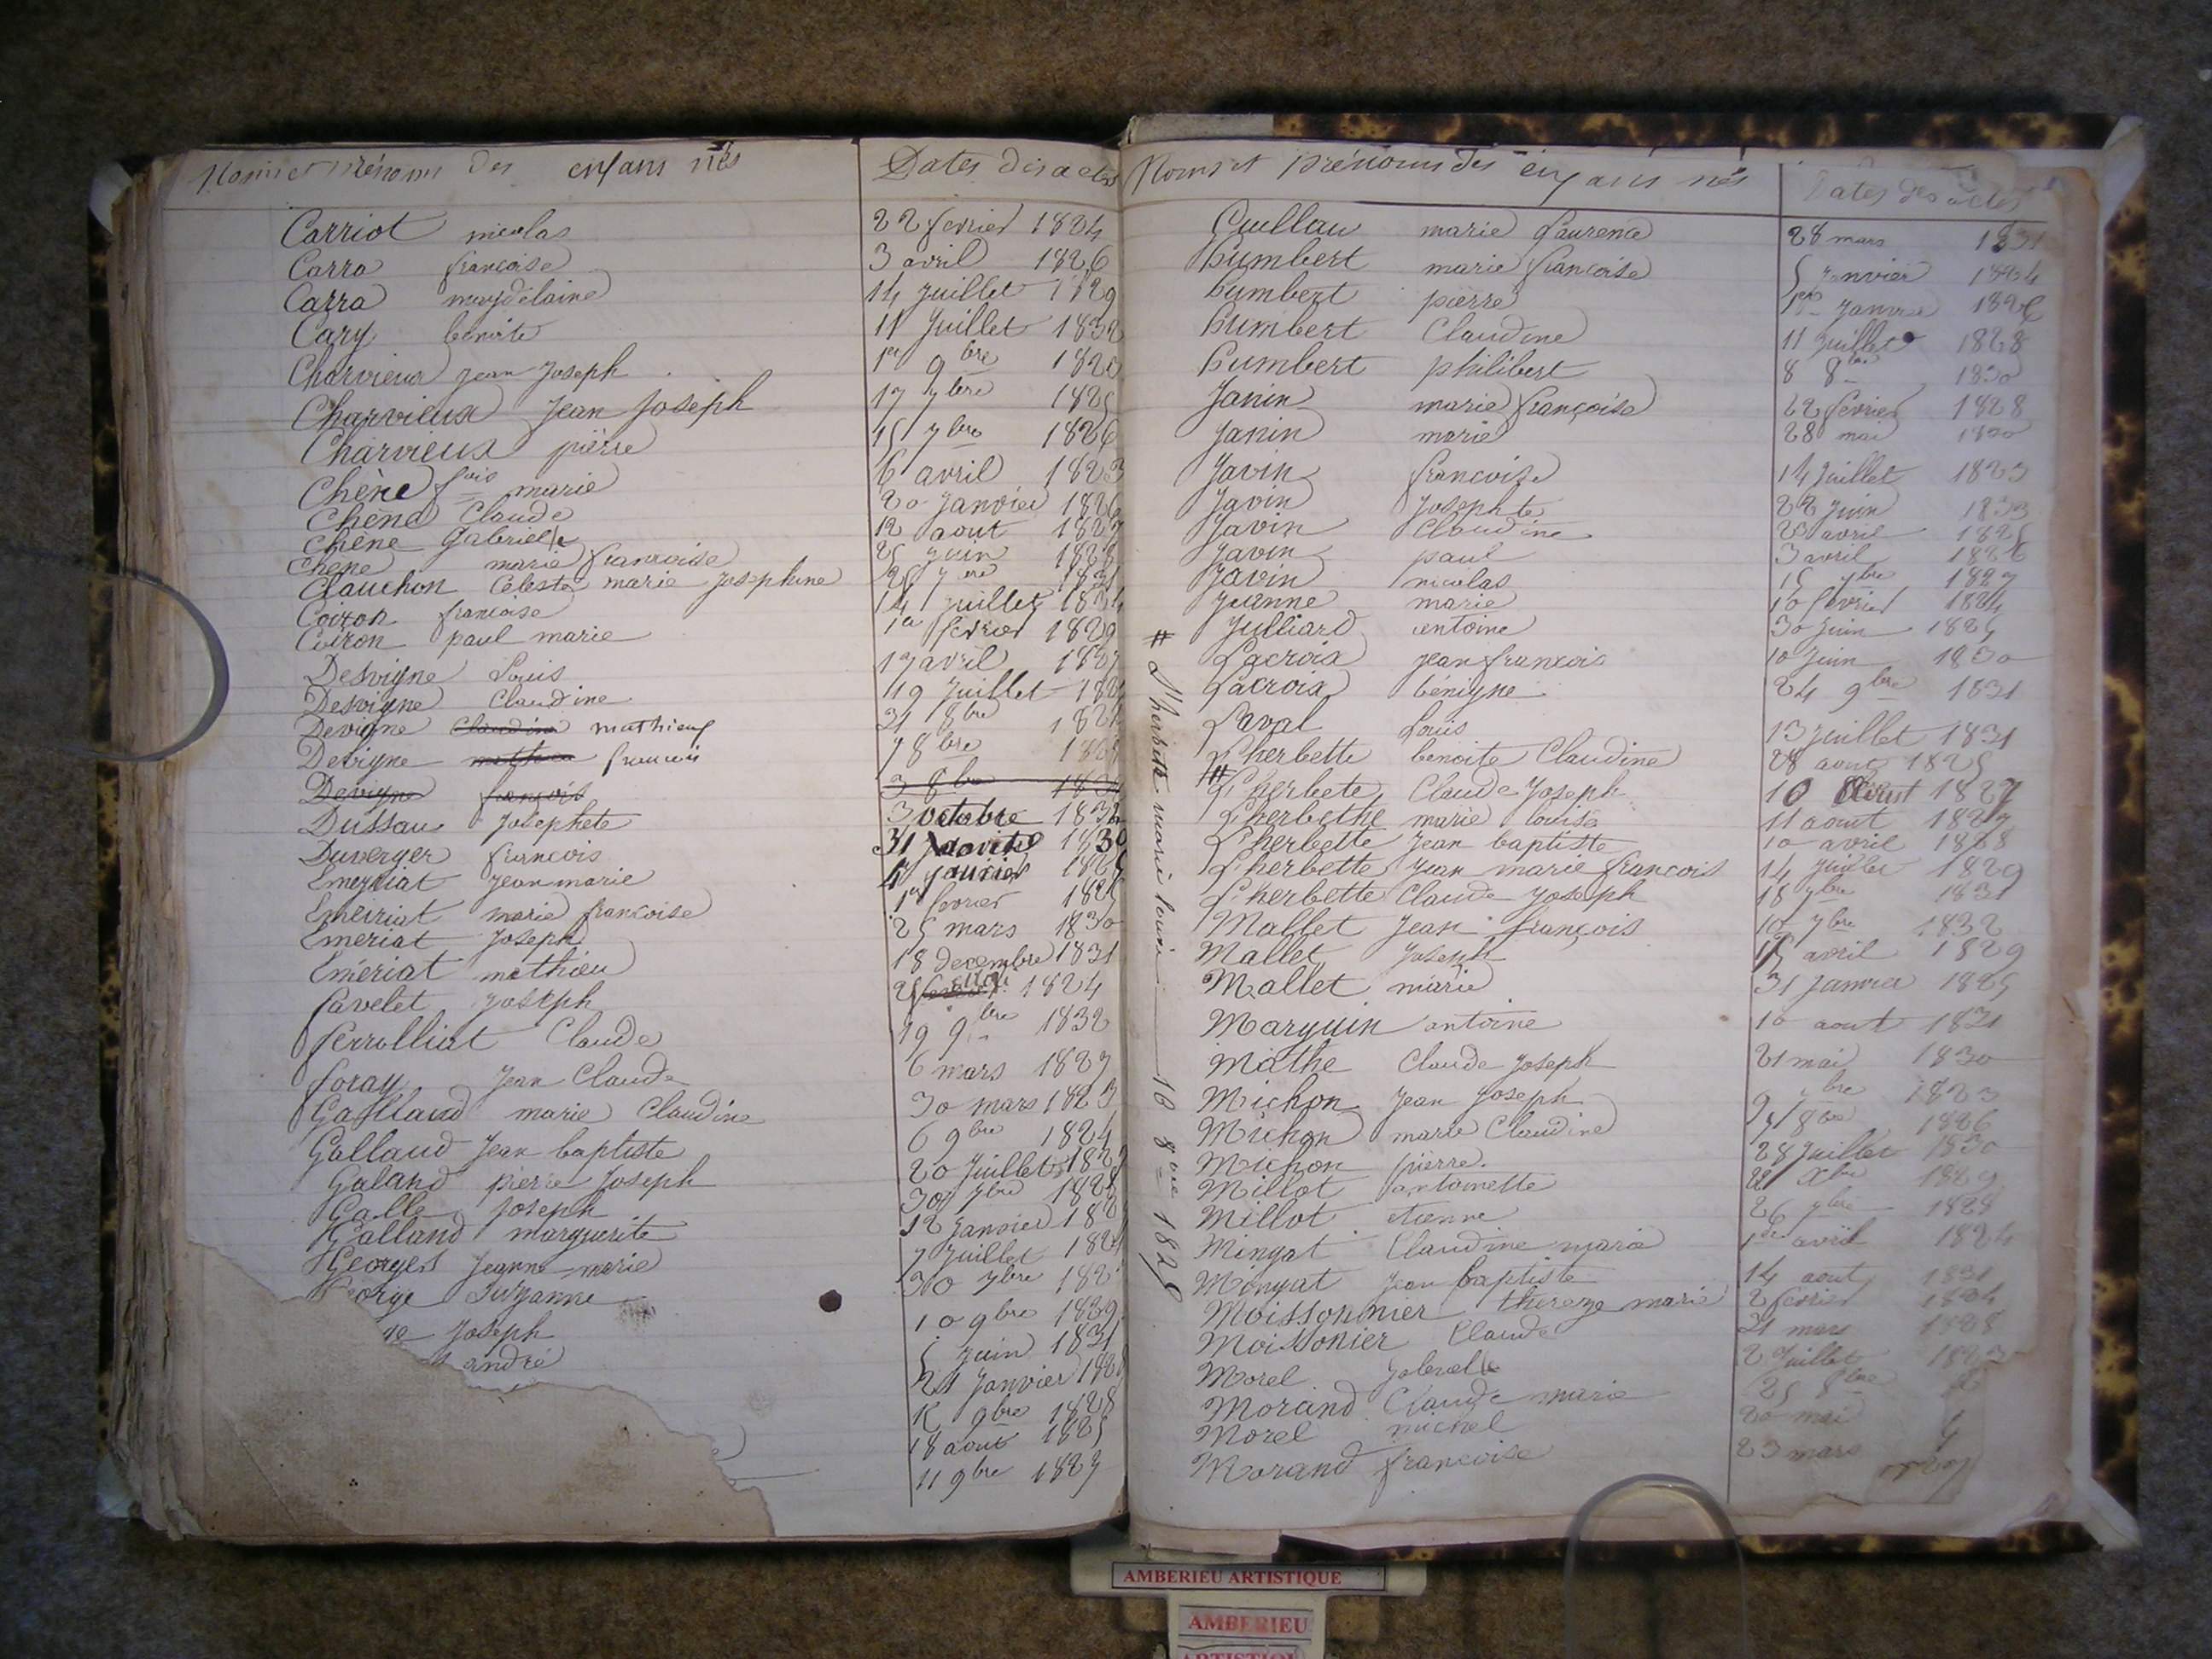 Noms et Prénoms des enfans nés Dates des actes
Carriot nicolas 22 fevrier 1824
Carra francoise 3 avril 1826
Carra magdelaine 14 Juillet 1829
Cary benoite 11 Juillet 1832
Charvieux jean Joseph 1er 9bre 1820
Charvieux Jean Joseph 17 7bre 1825
Charvieux pierre 15 7bre 1826
Chêne fois marie 6 avril 1823
Chêne Claude 20 Janvier 1826
Chêne Gabrielle 12 aout 1827
Chene marie francoise 25 juin 1828
Clauchon Celeste marie Josephine 1831
Coiron francoise 14 Juillet
Coiron paul marie 1er fevrier 1829
Desvigne Louis 17 avril
Desvigne Claudine 19 Juillet
Devigne Claudine mathieu 31 8bre
Devigne mathieu francois 7 8bre
Devigne françois 3 8bre
Dussau Josephete 3 octobre 1832
Duverger francois 31 1830
Emeyriat Jean marie
Emeiriat marie francoise 1er fevrier
Emeriat Joseph 25 mars 1830
Emériat mathieu 18 decembre 1831
favelet Joseph 1824
ferrolliat Claude 19 9bre 1832
foray Jean Claude 6 mars 1827
Galland marie Claudine 30 mars 1823
Gallaud Jean baptiste 6 9bre 1824
Galand pierre Joseph 20 Juillet
Galle Joseph 30 7bre
Galland marguerite 12 Janvier
Georges Jeanne marie 7 Juillet
George Suzanne 30 7bre
Joseph 10 9bre
andré 5 Juin 1831
21 Janvier
9bre 1828
18 aout 1825
11 9bre 1827
Noms et prénoms des enfans nés Dates des actes
Guillau marie Laurence 28 mars 1831
humbert marie francoise 5 Janvier 1824
humbert pierre 1er Janvier 1826
humbert Claudine 11 Juillet 1828
humbert philibert 8 8bre 1830
Janin marie françoise 22 fevrier 1828
Janin marie 28 mai 1830
Javin francoise 14 Juillet 1823
Javin Josephte 22 Juin 1833
Javin Claudine avril 1825
Javin paul 3 avril 1826
Javin nicolas 15 7bre 1827
Jeanne marie 10 fevrier 1824
Julliard antoine 30 Juin
Lacroix jean francois 10 Juin 1830
Lacroix bénigne 24 9bre 1831
Laval Louis 13 Juillet 1831
Lherbette benoite Claudine 28 aout 1825
# Lherbete Claude Joseph 10 Aout 1827
Lherbethe marie louise 11 aout 1827
Lherbette Jean baptiste 10 avril 1828
Lherbette Jean marie francois 14 Juillet 1829
Lherbette Claude Joseph 18 7bre 1831
Mallet Jean françois 10 7bre 1832
Mallet Joseph 15 avril 1829
Mallet marie 31 Janvier 1825
Marguin antoine 10 aout 1831
Mathe Claude Joseph 21 mai 1830
Michon Jean Joseph 7bre 1823
Michon marie Claudine 8bre 1826
Michon pierre 28 Juillet 1830
Millot antoinette Xbre 1829
Millot etienne 26 7bre 1828
Mingat Claudine marie 1er avril 1824
Mingat Jean baptiste 14 aout 1831
Moissonnier thereze marie 2 fevrier 1824
Moissonier Claude 21 mars 1828
Morel Gabrielle 2 Juillet
Morand Claude marie 25 8bre
Morel michel 20 mai
Morand francoise 23 mars
# Lherbette marie louise 10 8bre
AMBERIEU ARTISTIQUE
AMBERIEU
ARTISTIQUE